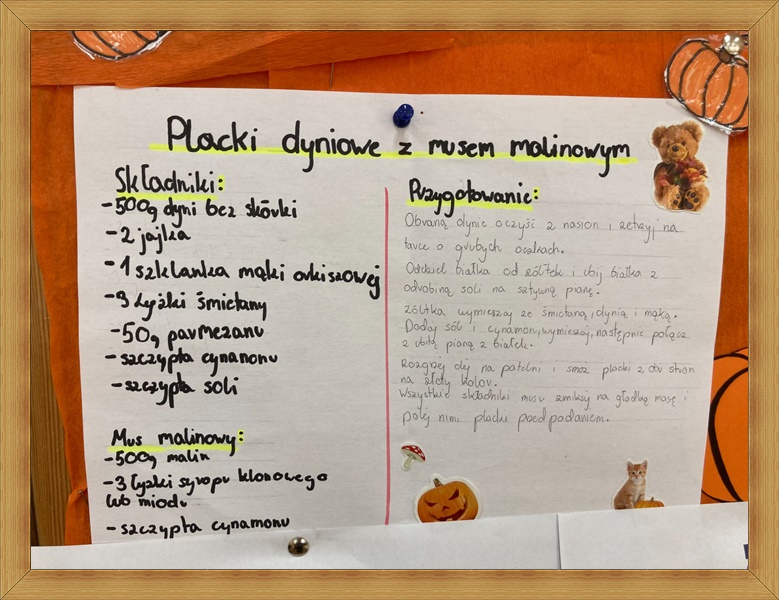 Placki dyniowe z musem malinowym
Składniki:
-500g dyni bez skórki
-2 jajka
-1 szklanka mąki orkiszowej
-3 łyżki śmietany
-50g parmezanu
-szczypta cynamonu
-szczypta soli
Mus malinowy:
-500g malin
-3 łyżki syropu klonowego
lub miodu
-szczypta cynamonu
Przygotowanie:
Obraną dynię oczyść z nasion i zetrzyj na
tarce o grubych oczkach.
Oddziel białka od żółtek i ubij białka z
odrobiną soli na sztywną pianę.
Żółtka wymieszaj ze śmietaną, dynią i mąką.
Dodaj sól i cynamon, wymieszaj, następnie połącz
z ubitą pianą z białek.
Rozgrzej olej na patelni i smaż placki z obu stron
na złoty kolor.
Wszystkie składniki musu zmiksuj na gładką masę i
polej nimi placki przed podaniem.